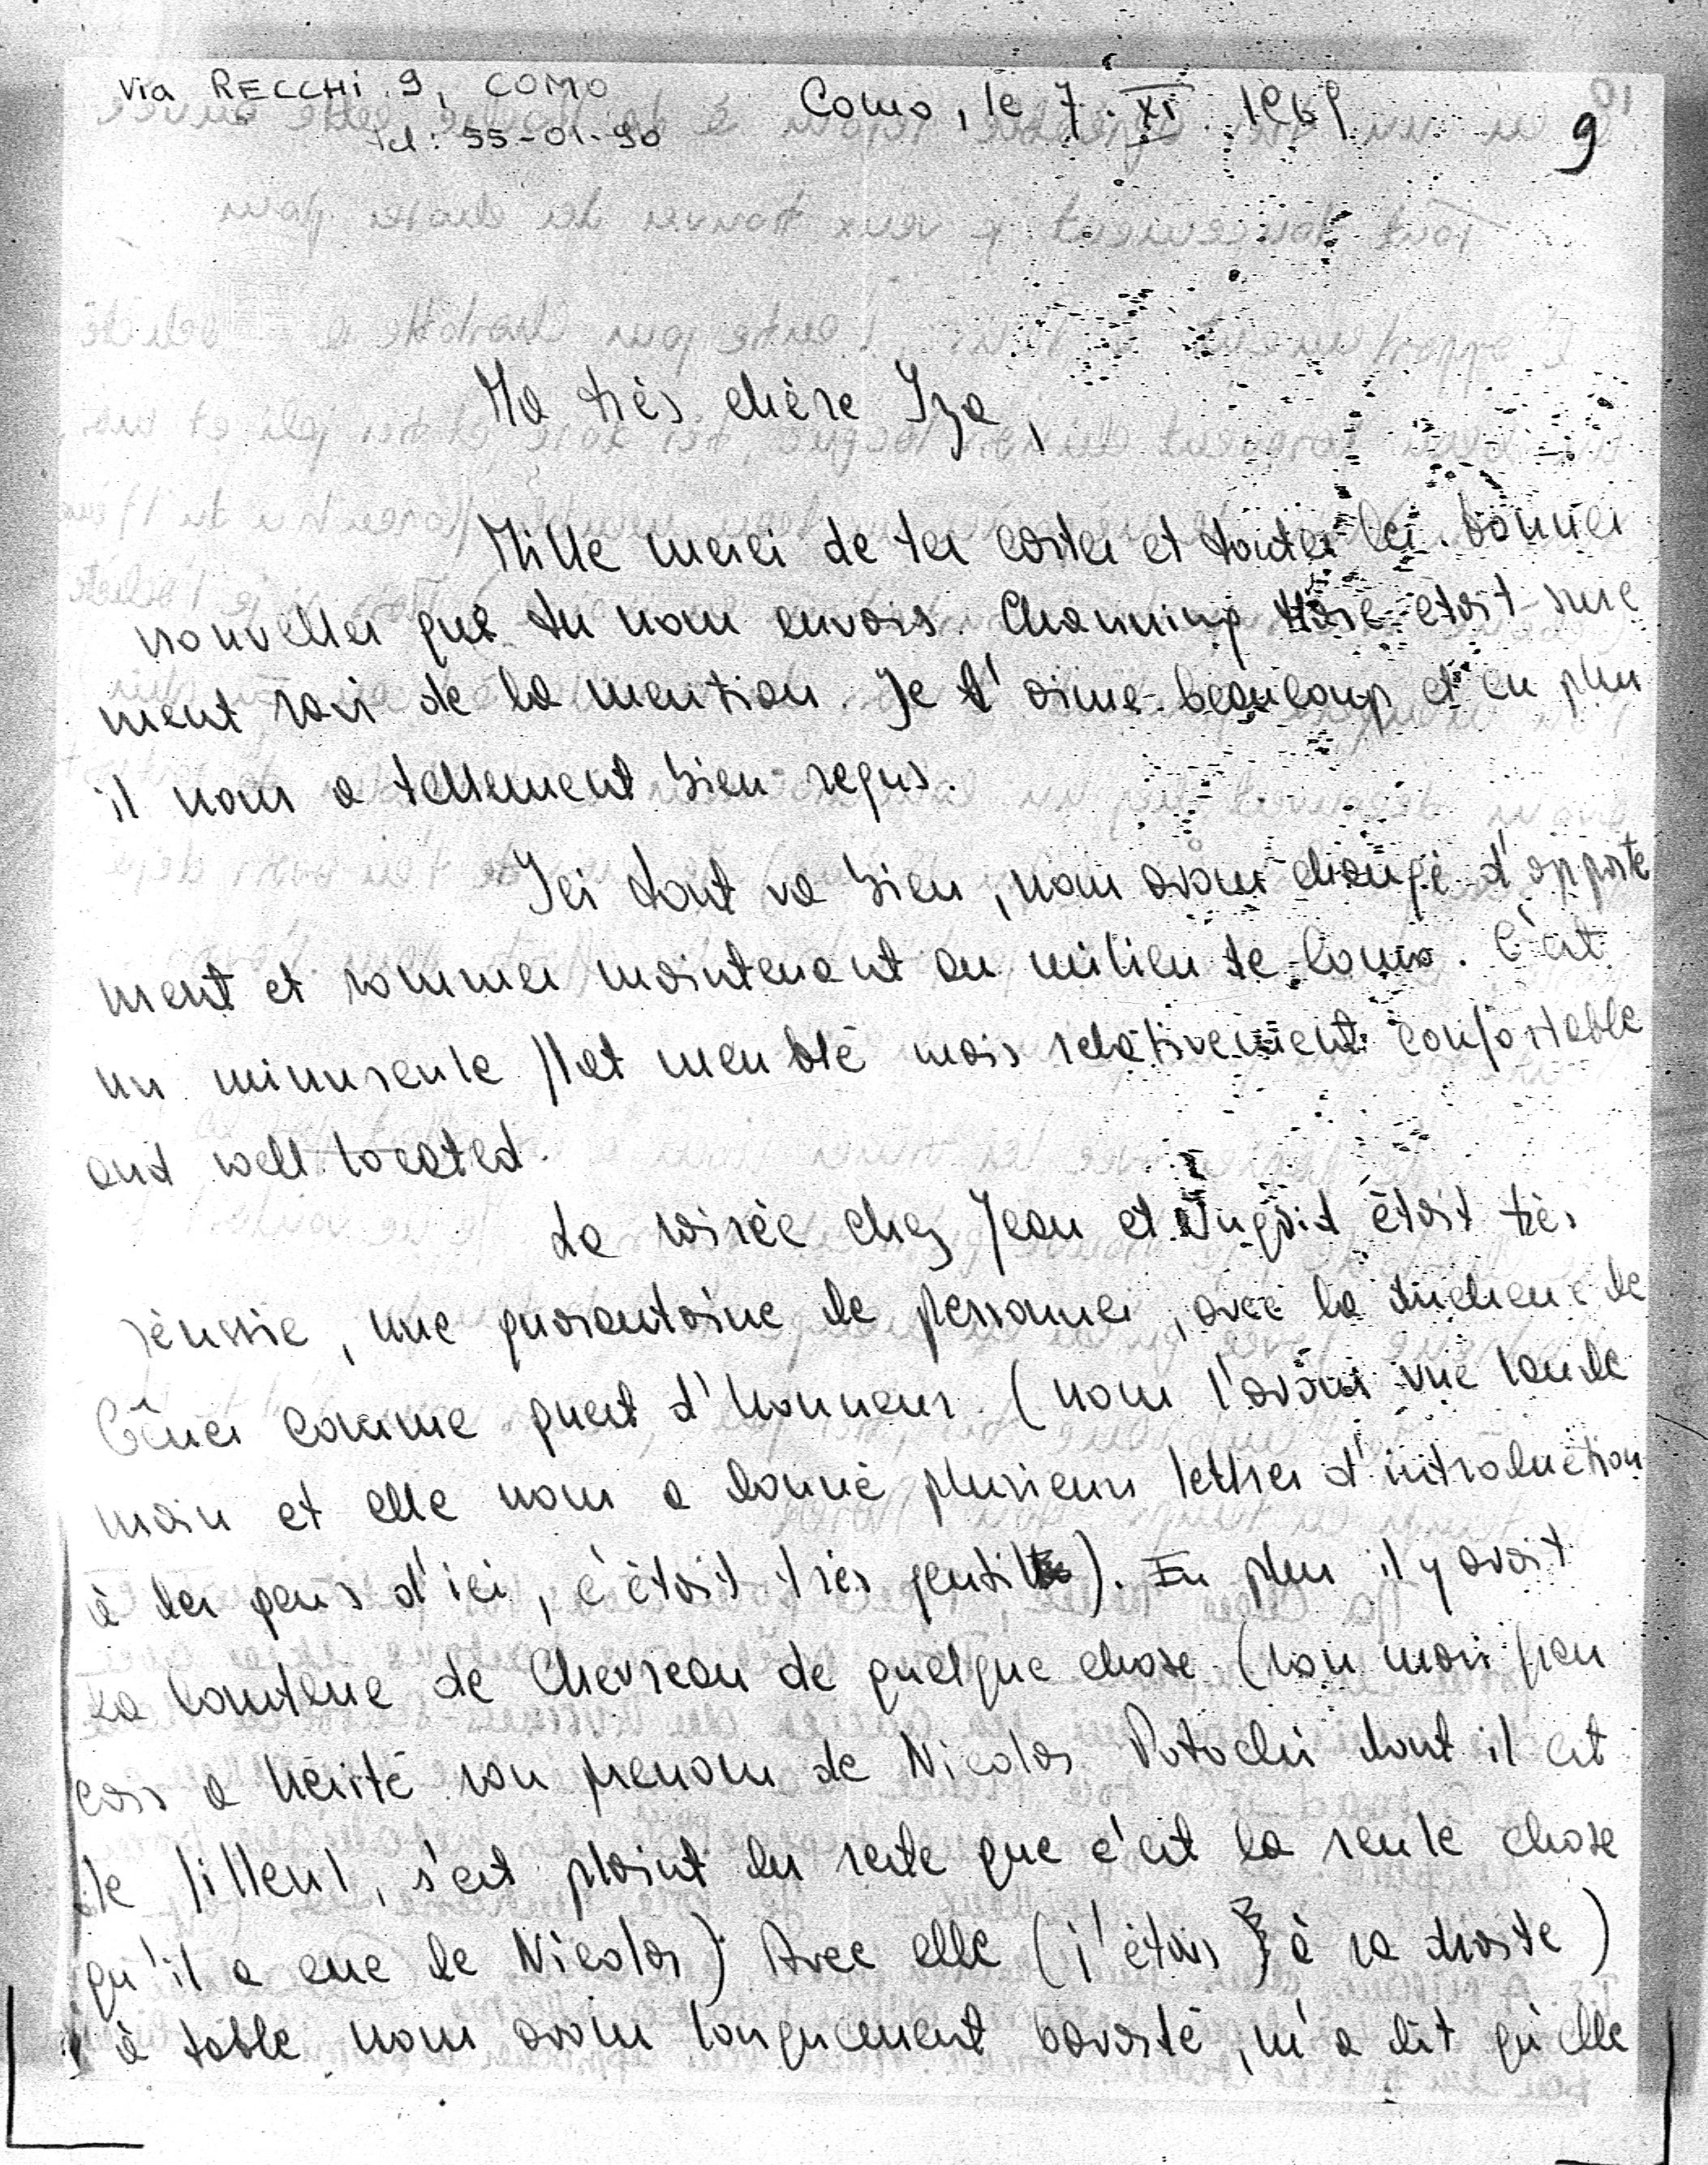 Via RECCHI 9, COMO
Tel: 55-01-90
Como, le 7. XI. 1969
9
Ma très chère Iza,
Mille merci de tes cartes et toutes les bonnes
nouvelles que tu nous envois. Channing Hare était sure
ment ravi de la mention. Je l'aime beaucoup et en plus
il nous a tellement bien reçus.
Ici tout va bien, nous avons changé d'apparte
ment et sommes maintenant au milieu de Como. C'est
un minuscule flat meublé mais relativement confortable
and well located
La soirée chez Jean et était très
réussie, une quarantaine de personnes, avec la duchesse de
comme guest d'honneur (nous l'avons vue lende
main et elle nous a donné plusieurs lettres d'introduction
à des gens d'ici, c'était très gentil). En plus il y avait
La Comtesse de Chevreau de quelque chose (son mari fran
çais a hérité son prenom de Nicolas Potocki dont il est
le filleul, s'est plaint du reste que c'est la seule chose
qu'il a eue de Nicolas) Avec elle (j'étais à sa droite)
à table nous avons longuement bavardé, m'a dit qu'elle